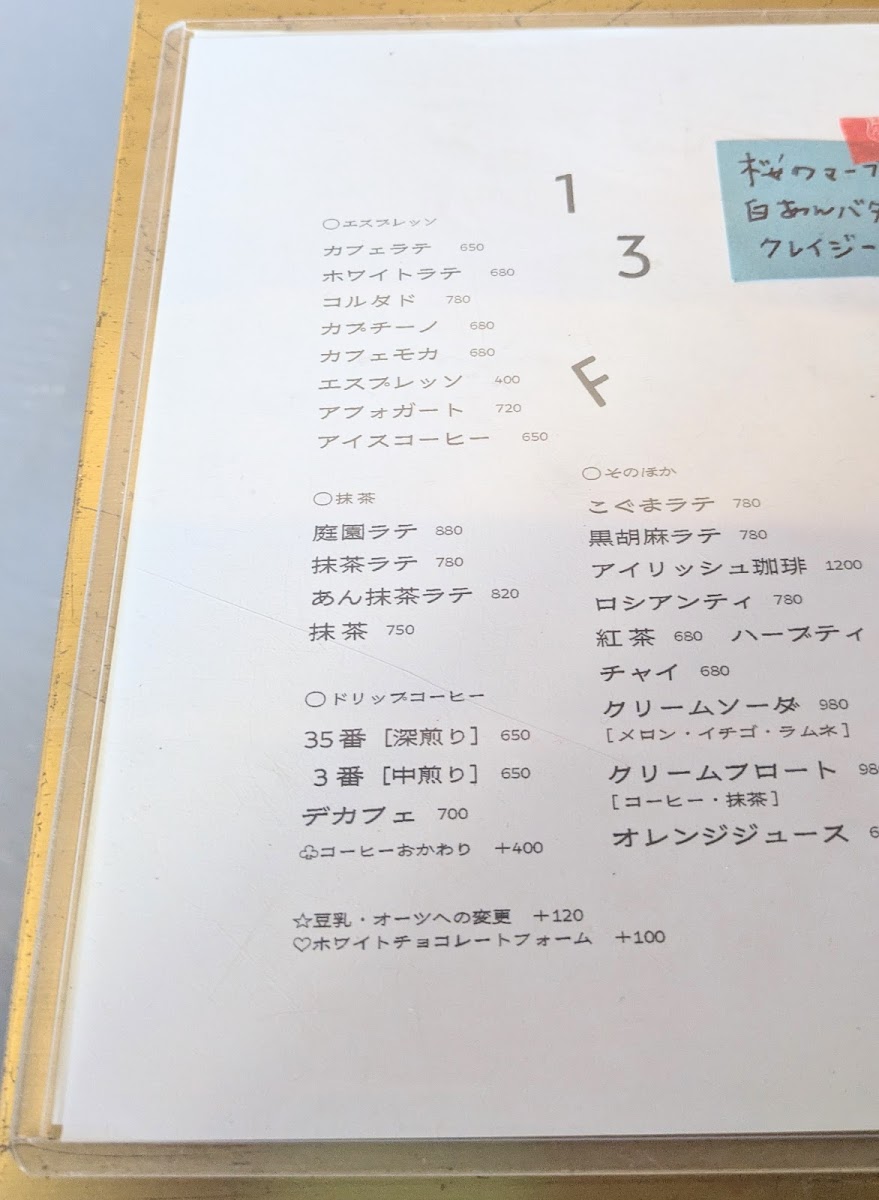 1
3
F
桜ワマーフ
白あんバタ
クレイジー
○エスプレッソ
カフェラテ 650
ホワイトラテ 680
コルタド 780
カプチーノ 680
カフェモカ 680
エスプレッソ 400
アフォガート 720
アイスコーヒー 650
○抹茶
庭園ラテ 880
抹茶ラテ 780
あん抹茶ラテ 820
抹茶 750
○ドリップコーヒー
35番［深煎り］ 650
3番［中煎り］ 650
デカフェ 700
♧コーヒーおかわり +400
○そのほか
こぐまラテ 780
黒胡麻ラテ 780
アイリッシュ珈琲 1200
ロシアンティ 780
紅茶 680 ハーブティ
チャイ 680
クリームソーダ 980
［メロン・イチゴ・ラムネ］
クリームフロート 98
［コーヒー・抹茶］
オレンジジュース 6
☆豆乳・オーツへの変更 +120
♡ホワイトチョコレートフォーム +100